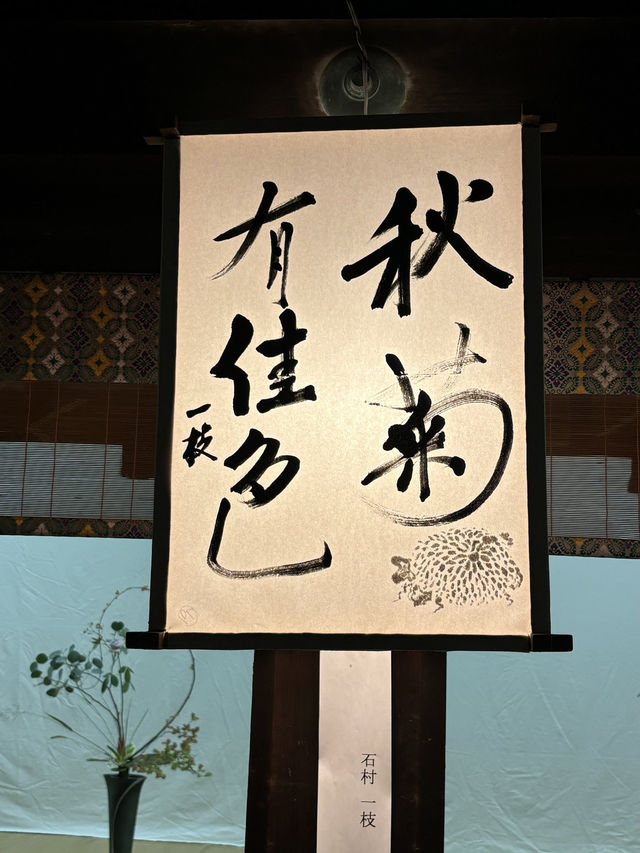 秋菊
有佳色
一枝
石村 一枝